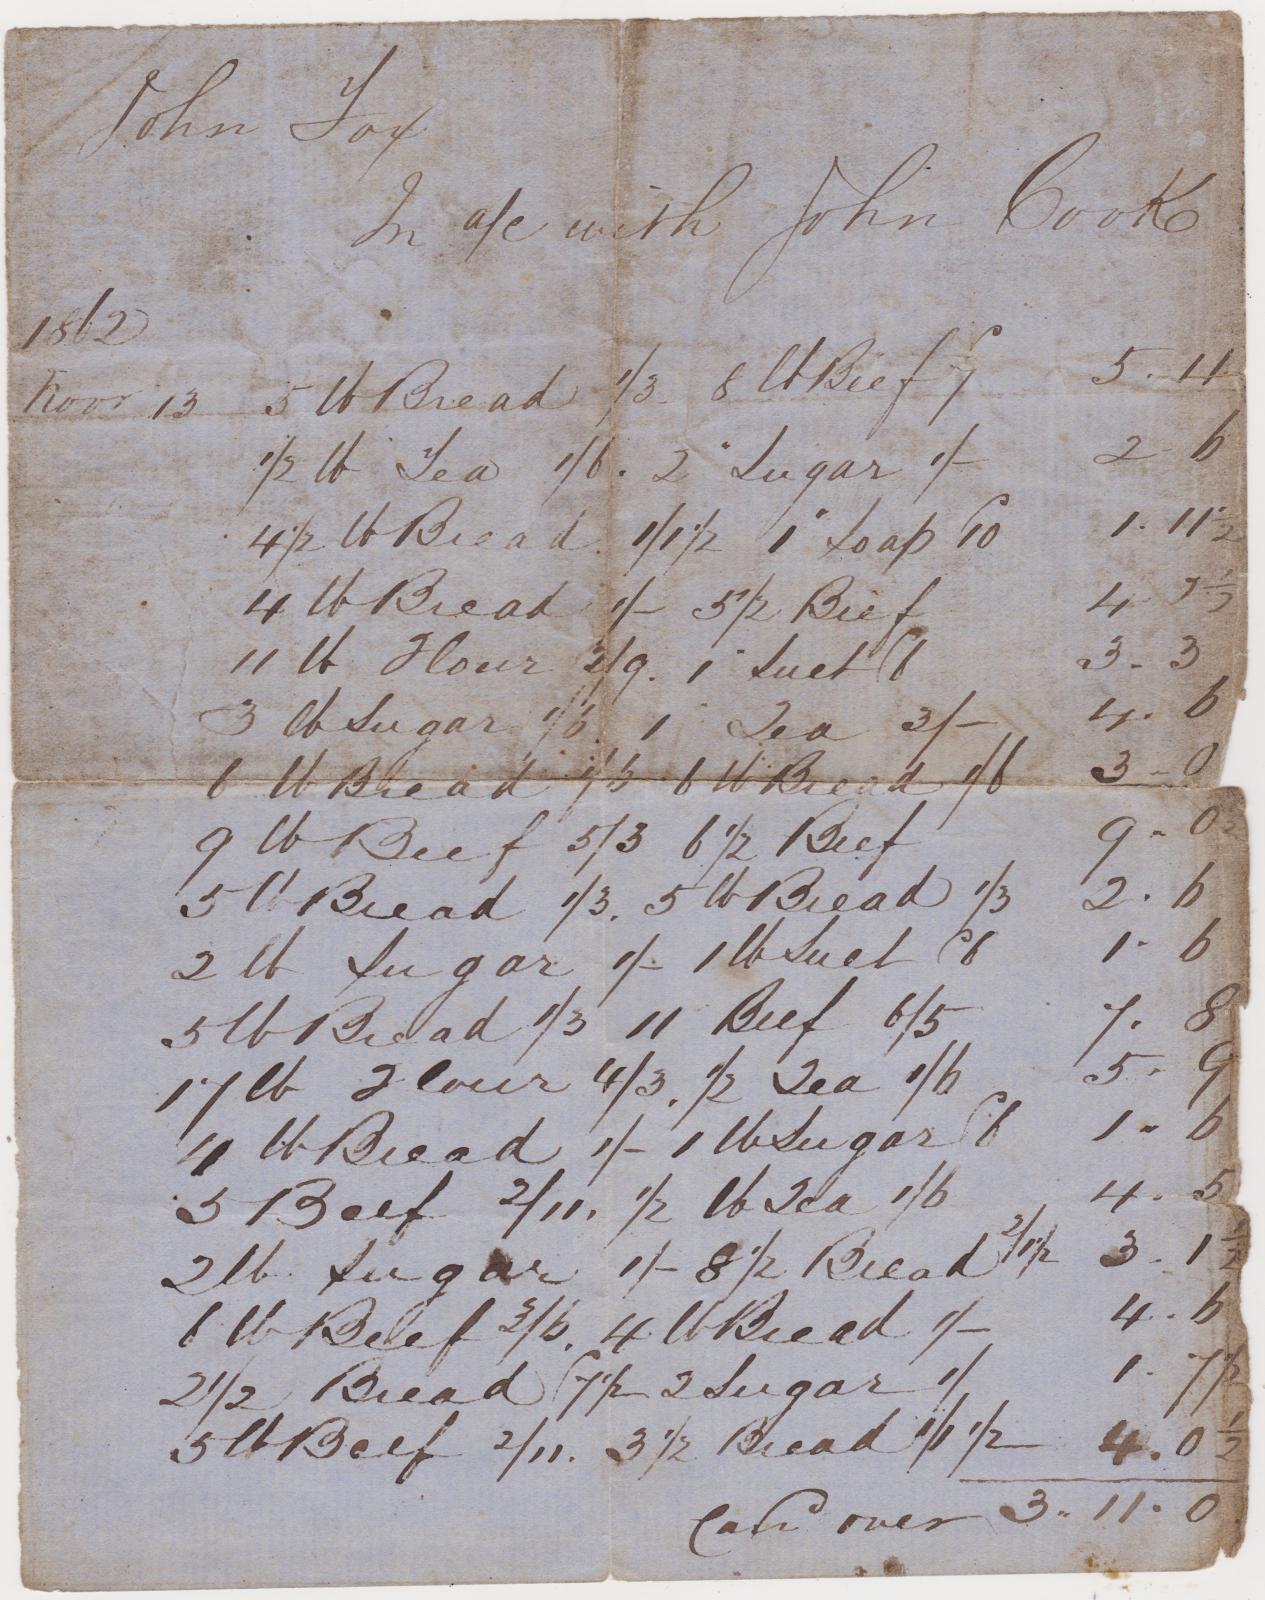 John Fox
In a/c with John Cook
1862
Novr 13 5 lb Bread 1/3 8 lb Beef 7 5 - 11
1/2 lb Tea 1/6. 2 " Sugar 1/- 2 - 6
4 1/2 lb Bread 1/1 1/2 1 " Soap /10 1 - 11 1/2
4 lb Bread 1/- 5 1/2 Beef 4 - 2 1/2
11 lb Flour 2/9. 1 " Suet /6 3 - 3
3 lb Sugar 1/6. 1 Tea 3/- 4 - 6
6 lb Bread 1/6 6 lb Bread 1/6 3 - 0
9 lb Beef 5/3 6 1/2 Beef 9 - 0 1/2
5 lb Bread 1/3. 5 lb Bread 1/3 2 - 6
2 lb Sugar 1/- 1 lb Suet /6 1 - 6
5 lb Bread 1/3 11 Beef 6/5 7 - 8
17 lb Flour 4/3. 1/2 Tea 1/6 5 - 9
4 lb Bread 1/- 1 lb Sugar /6 1 - 6
5 Beef 2/11. 1/2 lb Tea 1/6 4 - 5
2 lb Sugar 1/- 8 1/2 Bread 2/1 1/2 3 - 1 1/2
6 lb Beef 3/6. 4 lb Bread 1/- 4 - 6
2 1/2 Bread /7 1/2 2 Sugar 1/ 1 - 7 1/2
5 lb Beef 2/11. 3 1/2 Bread 1/1 1/2 4 - 0 1/2
Card over 3 - 11 - 0